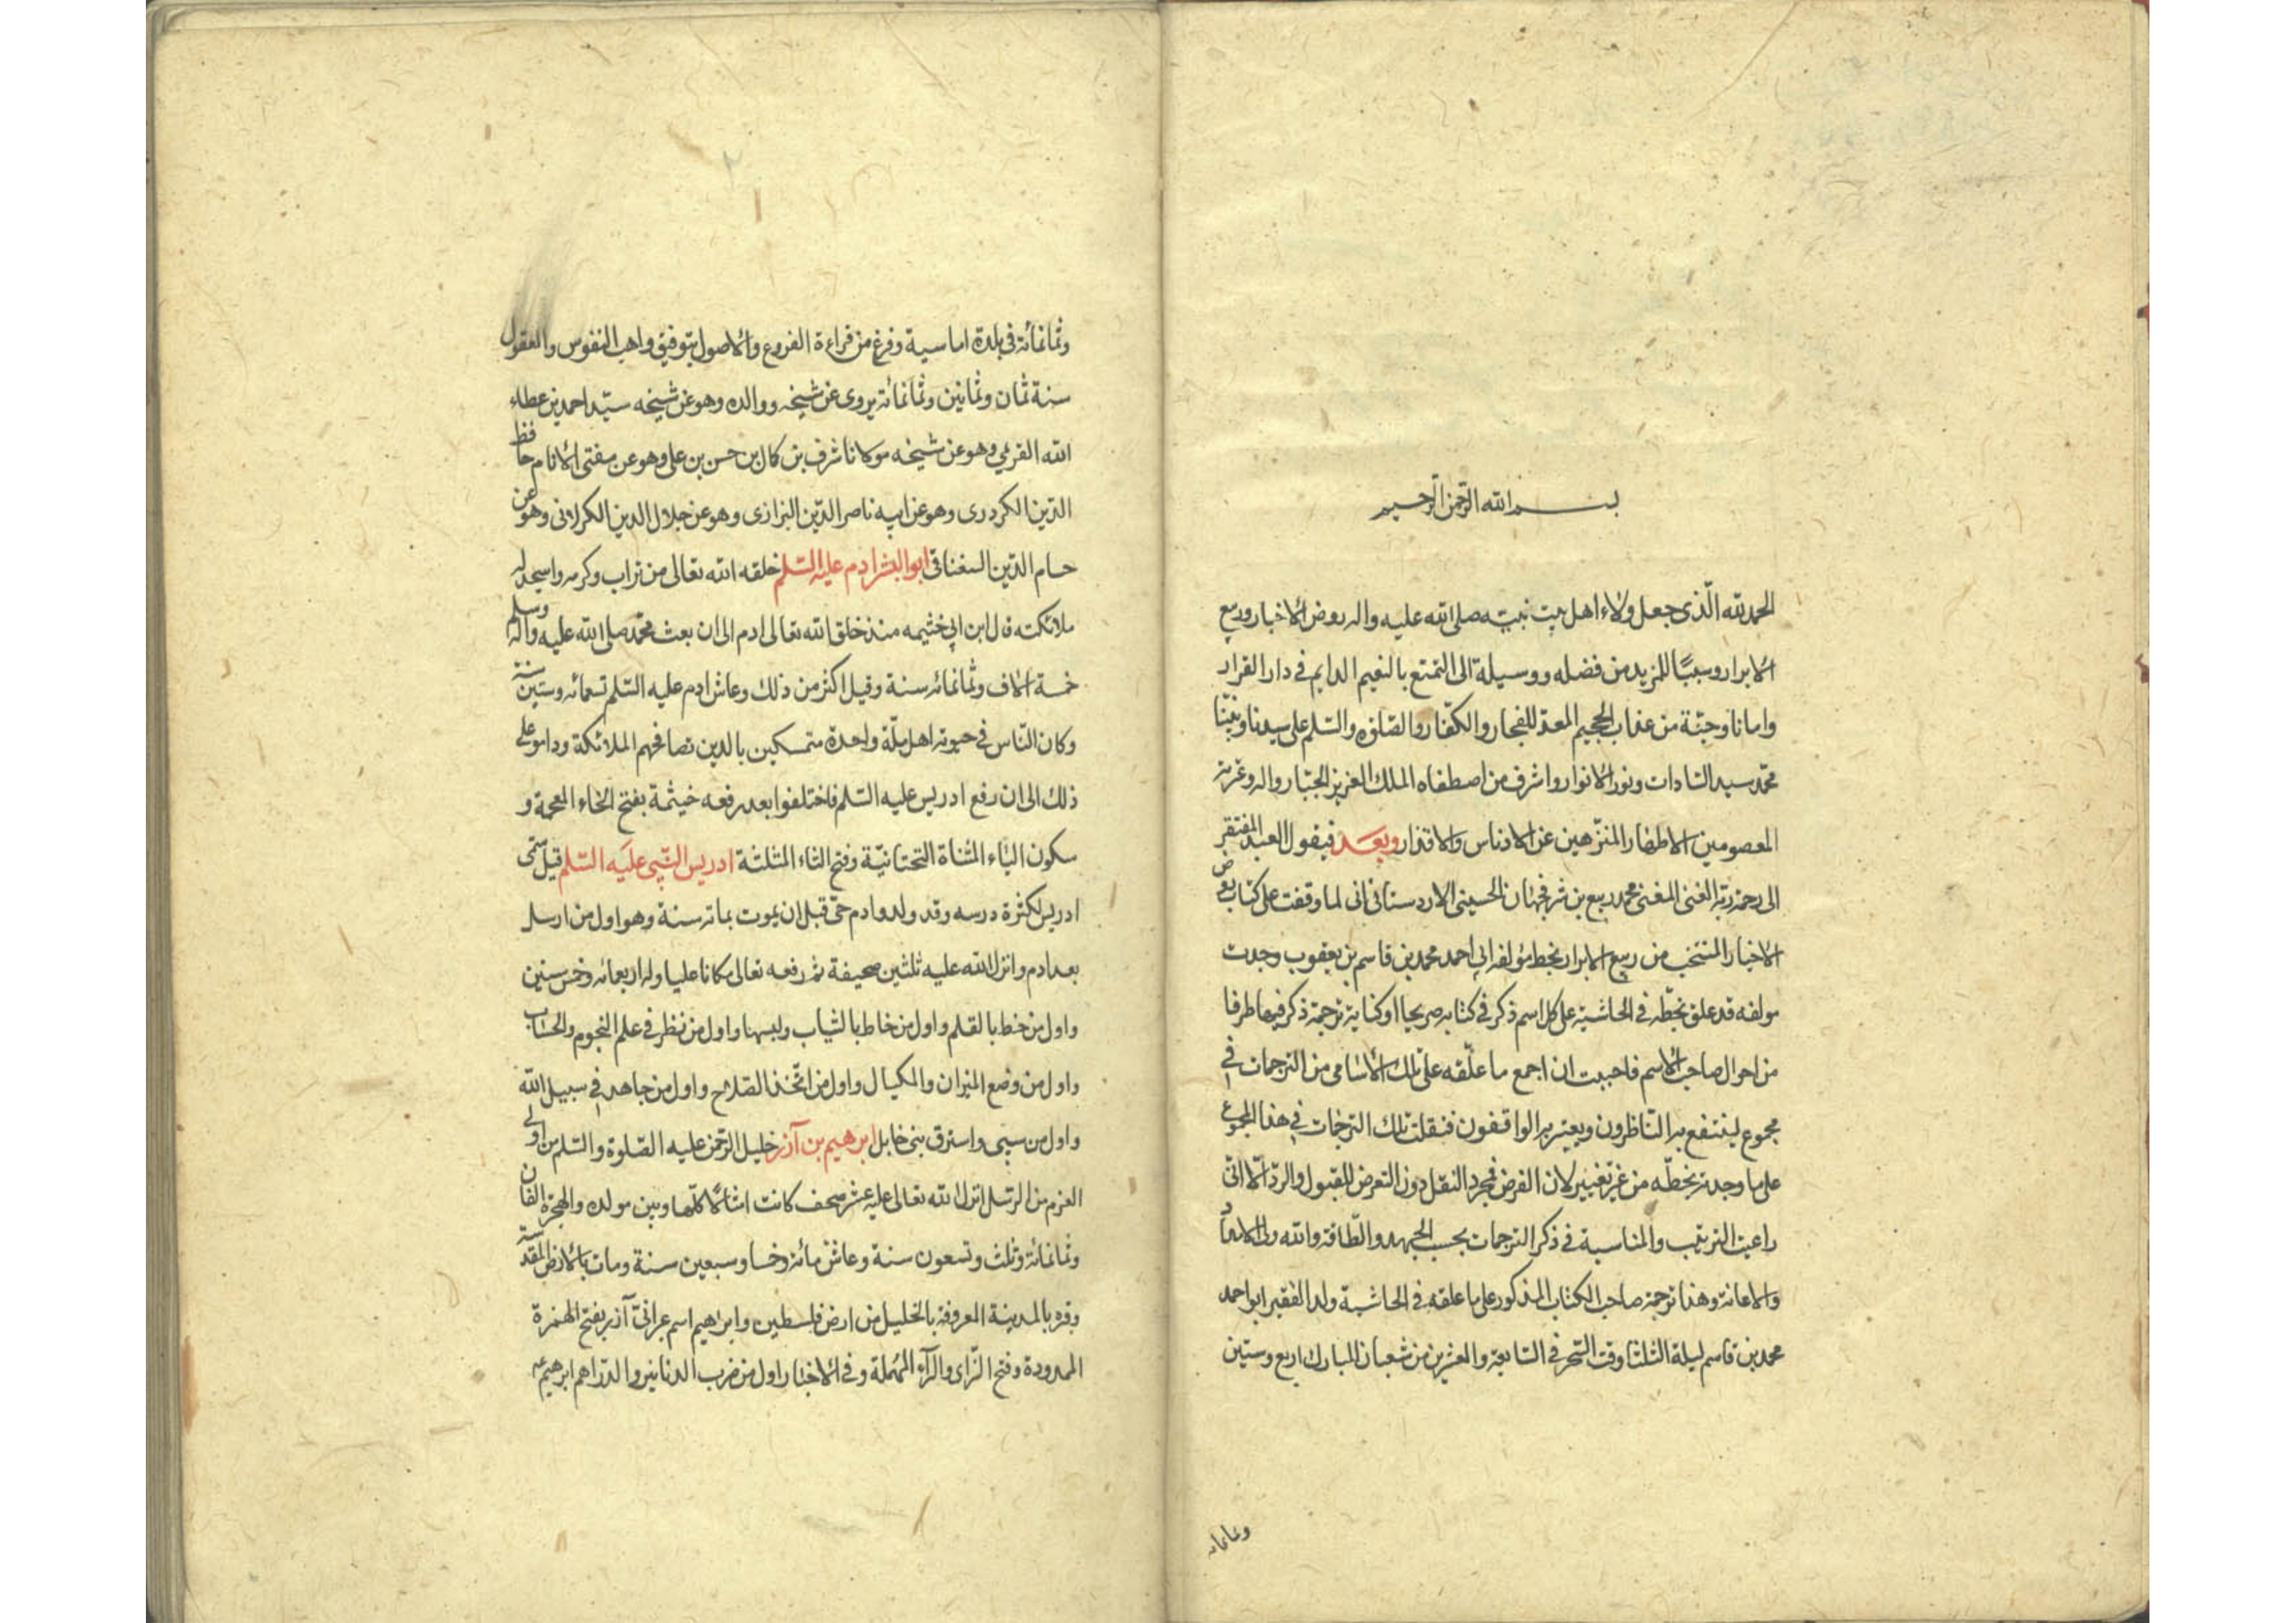 بسم الله الرحمن الرحيم
الحمد لله الذی جعل ولاء اهل بیت نبیه صلی الله علیه واله روض الاخبار وربیع
الابرار وسببًا للمزید من فضله ووسیلة الی التمتع بالنعیم الدایم فی دار القرار
وامانا وجنّة من عذاب الجحیم المعدّ للفجار والکفّار والصلوة والسلم علی سیدنا ونبینا
محمّد سید السادات ونور الانوار واشرف من اصطفاه الملک العزیز الجبّار واله وعترته
المعصومین الاطهار المنزّهین عن الادناس والاقذار وبعد فیقول العبد المفتقر
الی رحمة ربه الغنی المغنی محمد ربیع بن شرفجهان الحسینی الاردستانی انی لما وقفت علی کتاب روض
الاخبار المنتخب من ربیع الابرار بخط مؤلفه ابی احمد محمد بن قاسم بن یعقوب وجدت
مولفه قد علق بخطّه فی الحاشیة علی کل اسم ذکر فی کتابه صریحا او کنایة ترجمة ذکر فیها طرفا
من احوال صاحب الاسم فاحببت ان اجمع ما علّقه علی تلک الاسامی من الترجمات فی
مجموع لینتفع به الناظرون ویعتبر به الواقفون فنقلت تلک الترجمات فی هذا المجموع
علی ما وجدته بخطّه من غیر تغییر لان الغرض مجرد النقل دون التعرض للقبول والردّ الّا انّی
راعیت الترتیب والمناسبة فی ذکر الترجمات بحسب الجهد والطّاقة والله ولی الامداد
والاعانة وهذا ترجمة صاحب الکتاب المذکور علی ما علقه فی الحاشیة ولد الفقیر ابو احمد
محمد بن قاسم لیلة الثلثا وقت السّحر فی السابعة والعشرین من شعبان المبارک اربع وستین
وثمانمائه
وثمانمائة فی بلدة اماسیة وفرغ من قراءة الفروع والاصول بتوفیق واهب النفوس والعقول
سنة ثمان وثمانین وثمانمائة یروی عن شیخه ووالده وهو عن شیخه سیّد احمد بن عطاء
الله القریمی وهو عن شیخه مولانا شرف بن کمال بن حسن بن علی وهو عن مفتی الانام حافظ
الدّین الکردری وهو عن ابیه ناصر الدّین البزازی وهو عن جلال الدین الکرلانی وهو عن
حسام الدّین السغناقی ابو البشر ادم علیه السّلم خلقه الله تعالی من تراب وکرمه واسجد له
ملائکته قال ابن ابی خثیمه منذ خلق الله تعالی ادم الی ان بعث محمّد صلی الله علیه وآله وسلم
خمسة الاف وثمانمائه سنة وقیل اکثر من ذلک وعاش ادم علیه السّلم تسعمائه وستین سنة
وکان النّاس فی حیوته اهل ملّة واحدة متمسکین بالدین تصافحهم الملائکة وداموا علی
ذلک الی ان رفع ادریس علیه السّلم فاختلفوا بعد رفعه خیثمة بفتح الخاء المعجمة و
سکون الیاء المثناة التحتانیّة وفتح الثاء المثلثة ادریس النّبی علیه السّلم قیل سمّی
ادریس لکثرة درسه وقد ولد وادم حیّ قبل ان یموت بمائه سنة وهو اول من ارسل
بعد ادم وانزل الله علیه ثلثین صحیفة ثم رفعه تعالی مکانا علیا وله اربعمائه وخمس سنین
واول من خط بالقلم واول من خاط بالثیاب ولبسها واول من نظر فی علم النجوم والحساب
واول من وضع المیزان والمکیال واول من اتّخذ السّلاح واول من جاهد فی سبیل الله
واول من سبی واسترق بنی قابل ابرهیم بن آزر خلیل الرّحمن علیه الصّلوة والسّلم من اولی
العزم من الرسل انزل الله تعالی علیه عشر صحف کانت امثالًا کلّها وبین مولده والهجرة الفان
وثمانمائة وثلث وتسعون سنة وعاش مائه وخمسا وسبعین سنة ومات بالارض المقدسة
وقبره بالمدینة المعروفة بالخلیل من ارض فلسطین وابرهیم اسم عبرانیّ آزر بفتح الهمزة
الممدودة وفتح الزّای والرّاء المهملة وفی الاخبار اول من ضرب الدنانیر والدّراهم ابرهیم ع